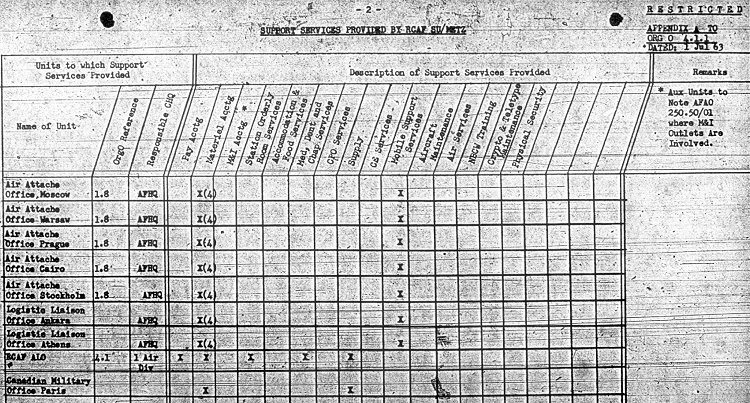 - 2 -
RESTRICTED
SUPPORT SERVICES PROVIDED BY RCAF SU/METZ
APPENDIX A TO
ORG O 4.1.1
DATED: 1 Jul 63
Units to which Support
Services Provided
Description of Support Services Provided
Remarks
Name of Unit
OrgO Reference
Responsible CHQ
Pay Acctg
Materiel Acctg
M&I Acctg *
Station Orderly
Room Services
Accommodation &
Food Services
Med, Dent and
Chap Services
Services
Supply
CE Services
Mobile Support
Services
Aircraft
Maintenance
Air Services
NBCW Training
Crypto & Teletype
Maintenance
Physical Security
* Aux Units to
Note AFAO
250.50/01
where M&I
Outlets Are
Involved.
Air Attache
Office, Moscow 1.8 AFHQ X(4) X
Air Attache
Office Warsaw 1.8 AFHQ X(4) X
Air Attache
Office Prague 1.8 AFHQ X(4) X
Air Attache
Office Cairo 1.8 AFHQ X(4) X
Air Attache
Office Stockholm 1.8 AFHQ X(4) X
Logistic Liaison
Office Ankara AFHQ X(4) X
Logistic Liaison
Office Athens AFHQ X(4) X
RCAF ALO 4.1 1 Air X X X X X
* Div
Canadian Military
Office Paris X X